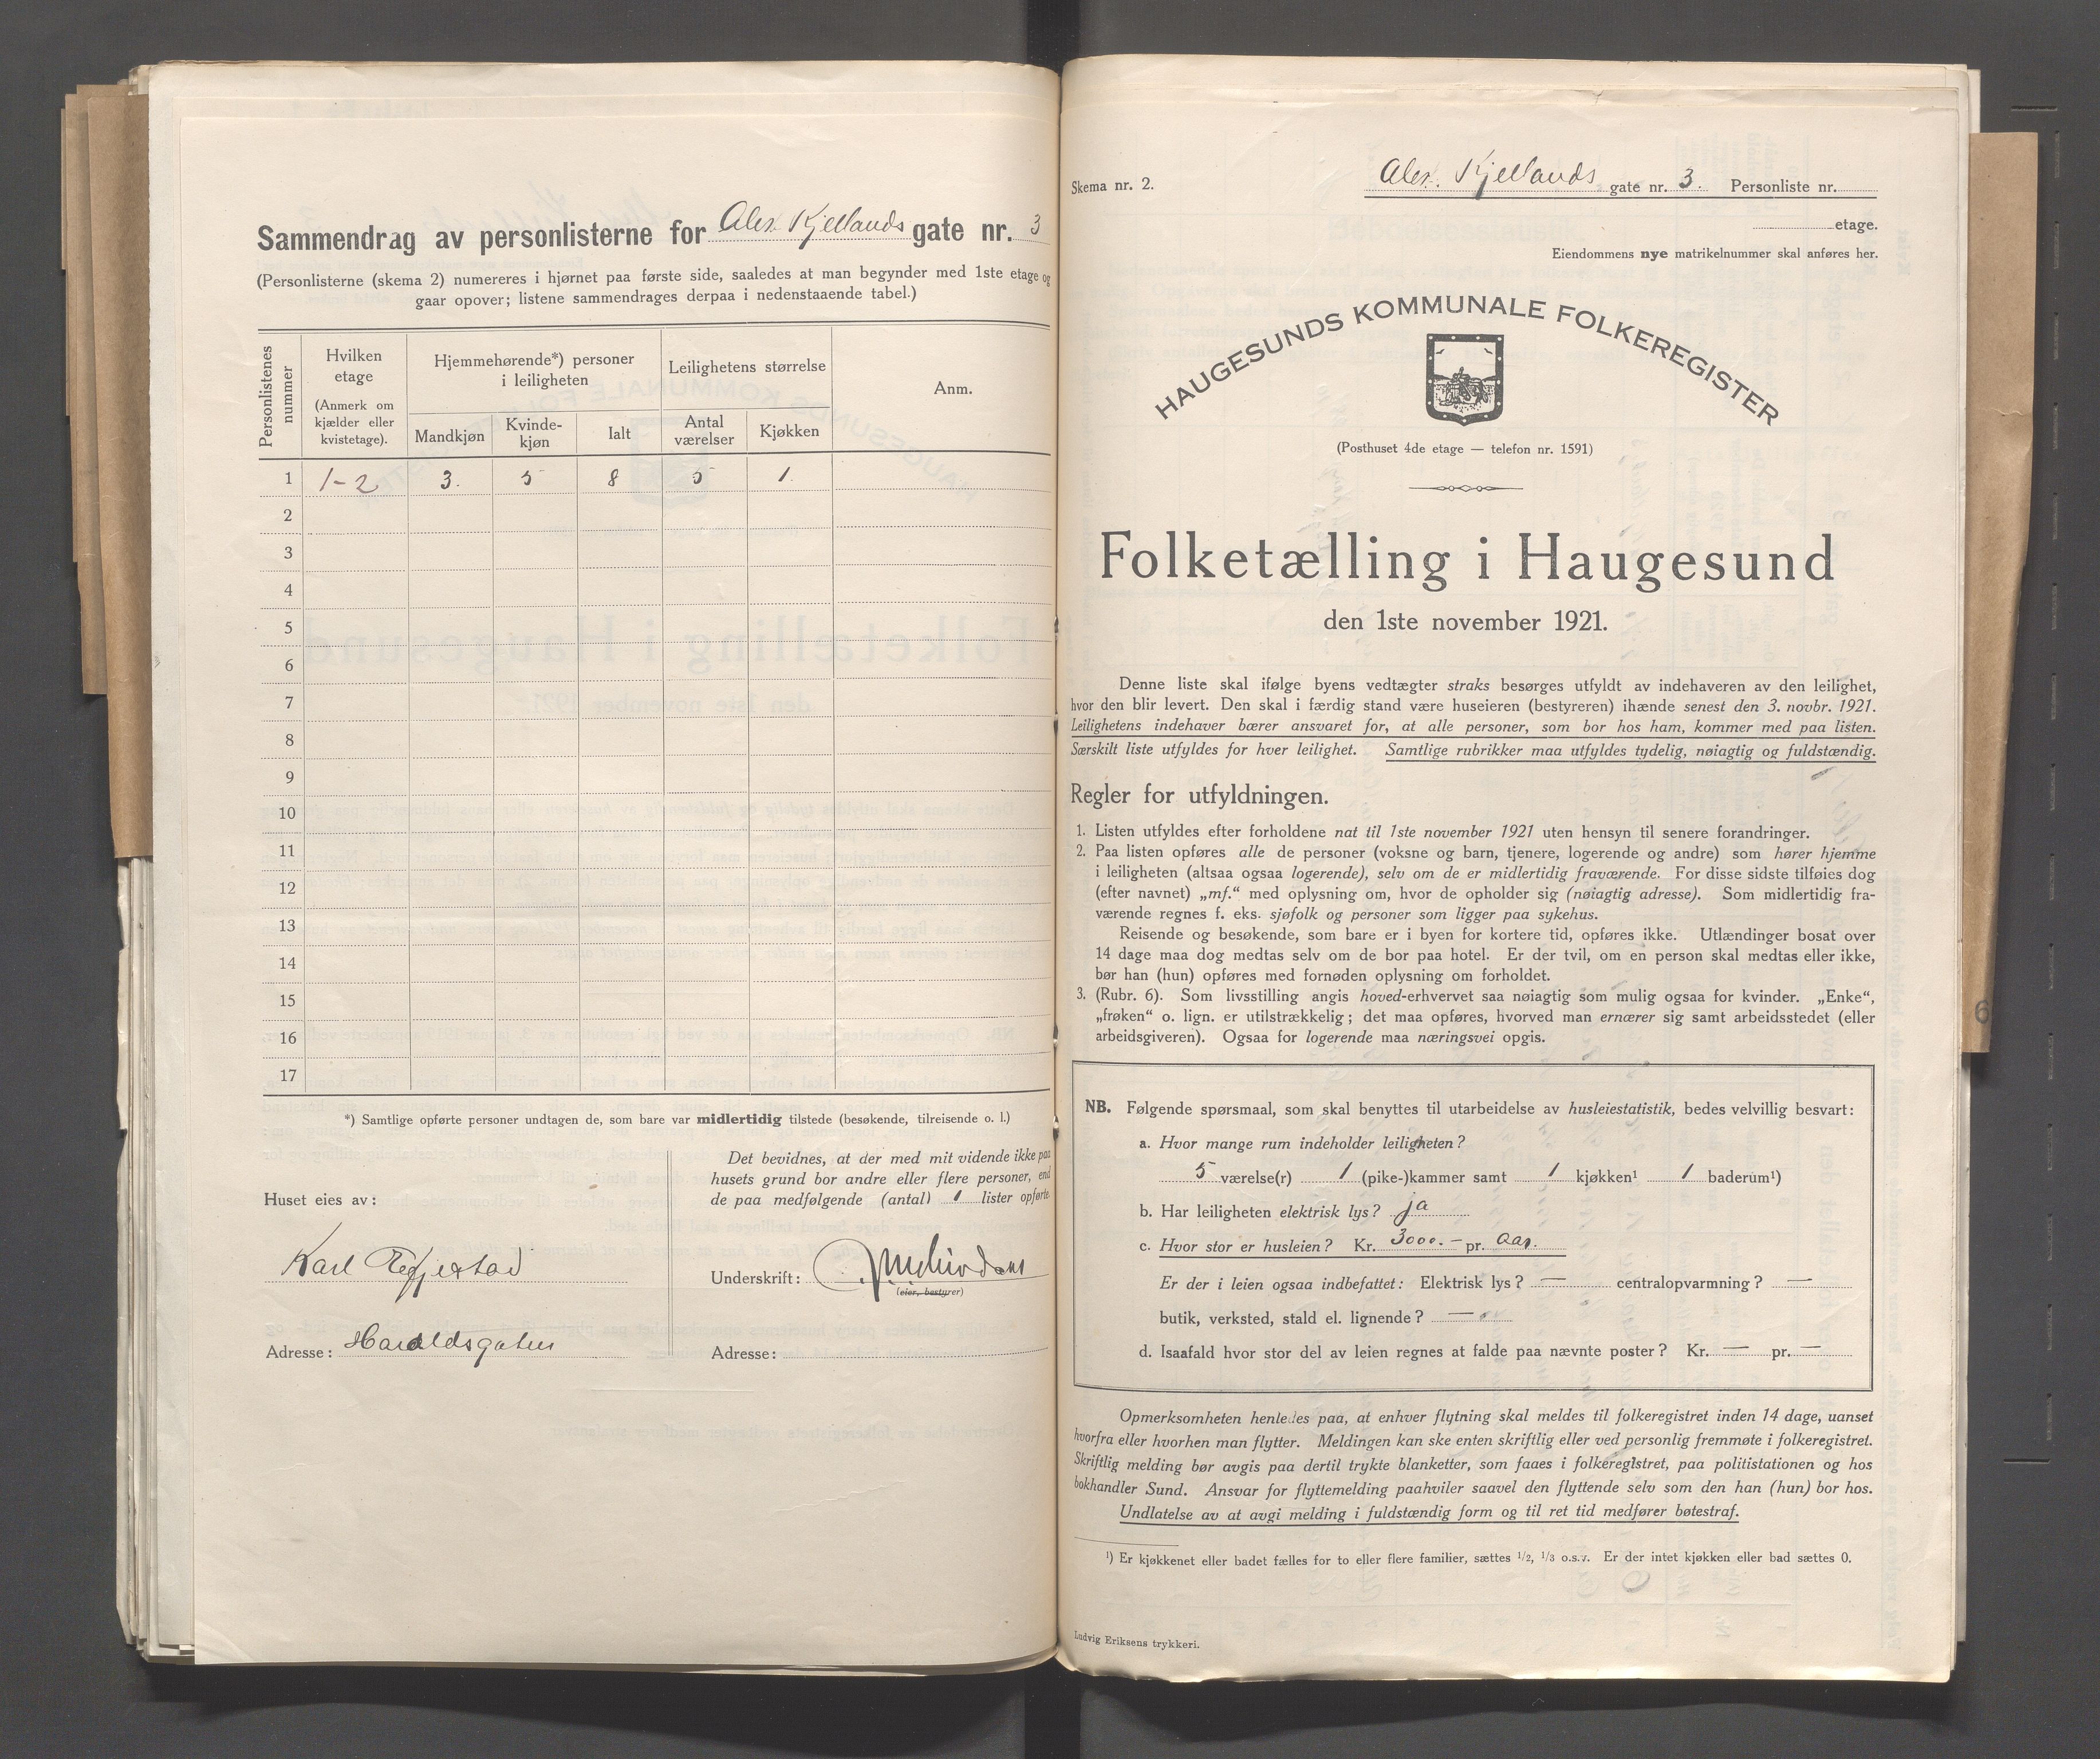 Sammendrag av personlisterne for Alex. Kjellands gate nr. 3
(Personlisterne (skema 2) numereres i hjørnet paa første side, saaledes at man begynder med 1ste etage og
gaar opover; listene sammendrages derpaa i nedenstaaende tabel.)
Personlistenes nummer
Hvilken etage
(Anmerk om kjælder eller kvistetage).
Hjemmehørende*) personer i leiligheten
Mandkjøn
Kvindekjøn
Ialt
Leilighetens størrelse
Antal værelser
Kjøkken
Anm.
1 1-2 3. 5 8 5 1
2
3
4
5
6
7
8
9
10
11
12
13
14
15
16
17
*) Samtlige opførte personer undtagen de, som bare var midlertidig tilstede (besøkende, tilreisende o. l.)
Huset eies av:
Karl
Adresse: Haraldsgaten
Det bevidnes, at der med mit vidende ikke paa
husets grund bor andre eller flere personer, end
de paa medfølgende (antal) 1 lister opførte.
Underskrift:
(eier, bestyrer)
Adresse:
Skema nr. 2.
Alex. Kjellands gate nr. 3. Personliste nr.
etage.
Eiendommens nye matrikelnummer skal anføres her.
HAUGESUNDS KOMMUNALE FOLKEREGISTER
(Posthuset 4de etage — telefon nr. 1591)
Folketælling i Haugesund
den 1ste november 1921.
Denne liste skal ifølge byens vedtægter straks besørges utfyldt av indehaveren av den leilighet,
hvor den blir levert. Den skal i færdig stand være huseieren (bestyreren) ihænde senest den 3. novbr. 1921.
Leilighetens indehaver bærer ansvaret for, at alle personer, som bor hos ham, kommer med paa listen.
Særskilt liste utfyldes for hver leilighet. Samtlige rubrikker maa utfyldes tydelig, nøiagtig og fuldstændig.
Regler for utfyldningen.
1. Listen utfyldes efter forholdene nat til 1ste november 1921 uten hensyn til senere forandringer.
2. Paa listen opføres alle de personer (voksne og barn, tjenere, logerende og andre) som hører hjemme
i leiligheten (altsaa ogsaa logerende), selv om de er midlertidig fraværende. For disse sidste tilføies dog
(efter navnet) „mf.“ med oplysning om, hvor de opholder sig (nøiagtig adresse). Som midlertidig fra-
værende regnes f. eks. sjøfolk og personer som ligger paa sykehus.
Reisende og besøkende, som bare er i byen for kortere tid, opføres ikke. Utlændinger bosat over
14 dage maa dog medtas selv om de bor paa hotel. Er der tvil, om en person skal medtas eller ikke,
bør han (hun) opføres med fornøden oplysning om forholdet.
3. (Rubr. 6). Som livsstilling angis hoved-erhvervet saa nøiagtig som mulig ogsaa for kvinder. „Enke“,
„frøken“ o. lign. er utilstrækkelig; det maa opføres, hvorved man ernærer sig samt arbeidsstedet (eller
arbeidsgiveren). Ogsaa for logerende maa næringsvei opgis.
NB. Følgende spørsmaal, som skal benyttes til utarbeidelse av husleiestatistik, bedes velvillig besvart:
a. Hvor mange rum indeholder leiligheten?
5 værelse(r) 1 (pike-)kammer samt 1 kjøkken¹ 1 baderum¹)
b. Har leiligheten elektrisk lys? ja
c. Hvor stor er husleien? Kr. 3000.- pr. aar.
Er der i leien ogsaa indbefattet: Elektrisk lys? — centralopvarmning? —
butik, verksted, stald el. lignende? —
d. Isaafald hvor stor del av leien regnes at falde paa nævnte poster? Kr. — pr. —
Opmerksomheten henledes paa, at enhver flytning skal meldes til folkeregistret inden 14 dage, uanset
hvorfra eller hvorhen man flytter. Meldingen kan ske enten skriftlig eller ved personlig fremmøte i folkeregistret.
Skriftlig melding bør avgis paa dertil trykte blanketter, som faaes i folkeregistret, paa politistationen og hos
bokhandler Sund. Ansvar for flyttemelding paahviler saavel den flyttende selv som den han (hun) bor hos.
Undlatelse av at avgi melding i fuldstændig form og til ret tid medfører bøtestraf.
¹) Er kjøkkenet eller badet fælles for to eller flere familier, sættes 1/2, 1/3 o.s.v. Er der intet kjøkken eller bad sættes 0.
Ludvig Eriksens trykkeri.
6